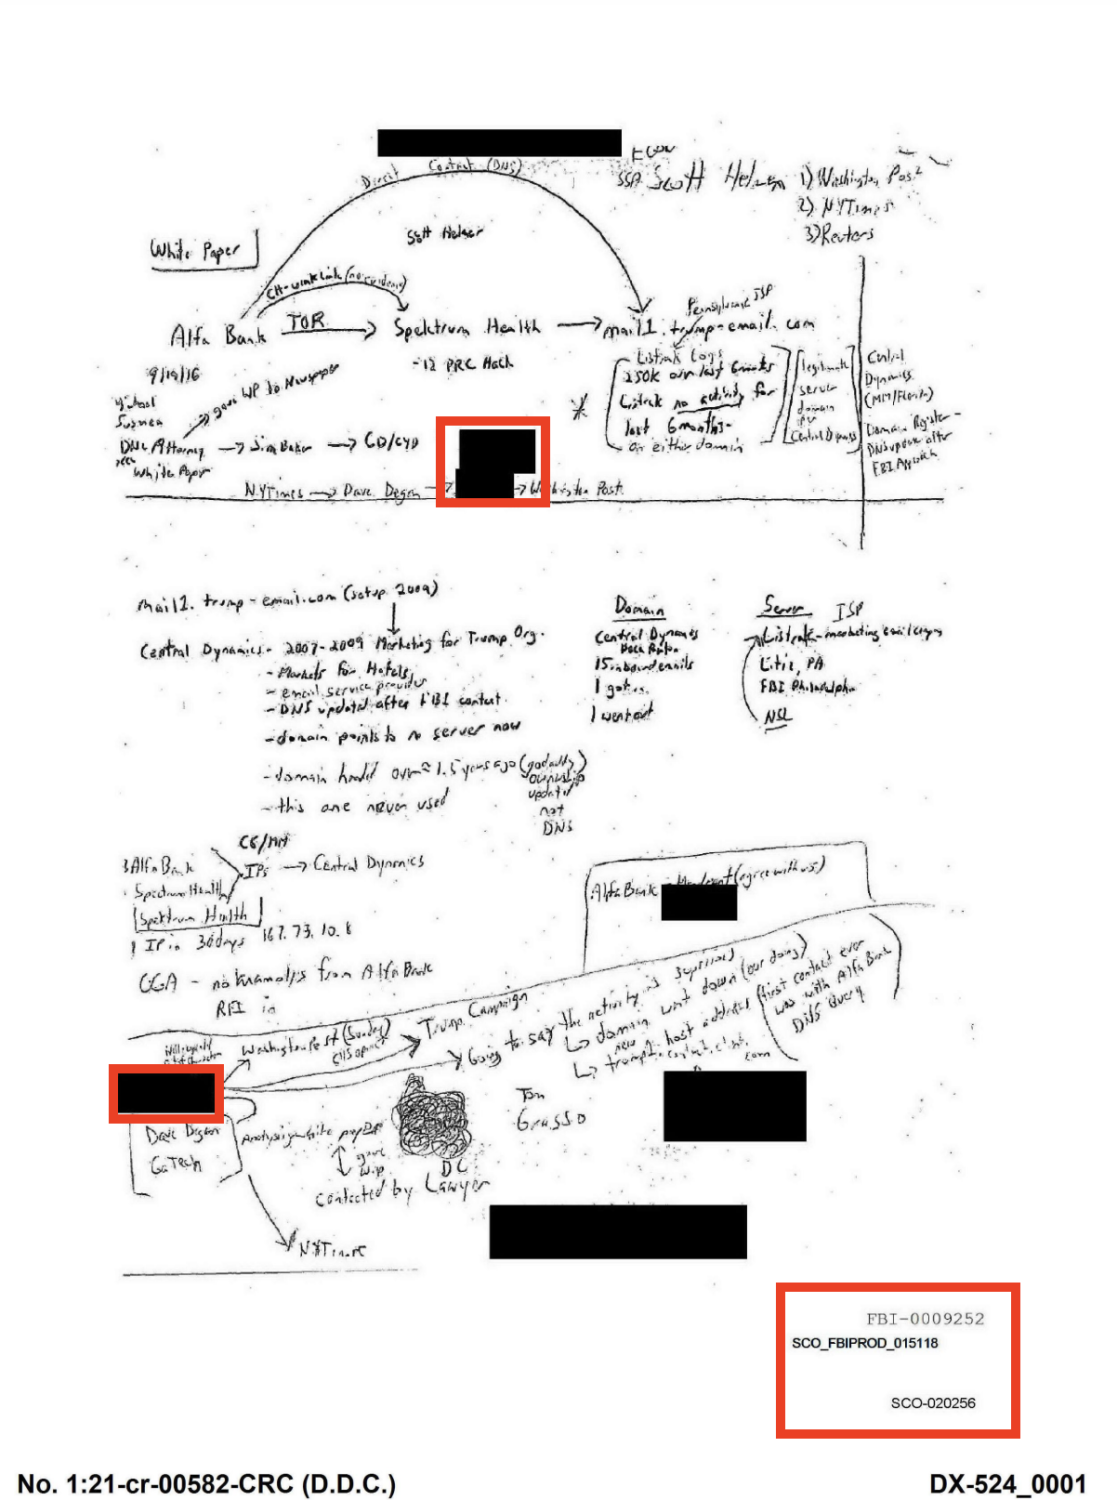 Direct Contact (DNS)
SSA Scott Hellman
1) Washington Post
2) NYTimes
3) Reuters
Scott Hellman
White Paper
(no evidence)
Alfa Bank TOR Spektrum Health mail1.trump-email.com
Pennsylvania ISP
-12 PRC Hack
Listrak Logs
250K over last 6 months
Listrak no activity for
last 6 months-
on either domain
legitimate
server
domain
per
Central Dynamics
Central
Dynamics
(MM/Florida)
Domain Register-
DNS update after
FBI Approach
9/19/16
gave WP to Newspaper
Michael
Sussman
DNC Attorney → Jim Baker → CD/CYD
White Paper
NYTimes → Dave Degon → → Washington Post
mail1.trump-email.com (setup 2009)
Central Dynamics - 2007-2009 Marketing for Trump Org.
- Markets for Hotels
- email service provider
- DNS updated after FBI contact.
- domain points to no server now
- domain handed over ≈ 1.5 years ago (godaddy)
ownership
updated
not
DNS
- this one never used
Domain
Central Dynamics
15 inbound emails
1 got in
1 went out
Server ISP
Listrak - marketing email
Litiz, PA
FBI Philadelphia
NSL
3 Alfa Bank
Spectrum Health
IPs → Central Dynamics
Spektrum Health
1 IP in 30 days 167.73.10.8
- no from Alfa Bank
RFI in
Alfa Bank - Mandiant (agree with us)
Washington Post (Sunday)
Trump Campaign
Going to say the activity is suspicious
domain went down (our doing)
new host address (first contact ever
was with Alfa Bank
DNS Query
Dave Degon
GaTech
Analysis white paper
gave
W.P
DC
contacted by Lawyer
Tom
Grasso
NYTimes
FBI-0009252
SCO_FBIPROD_015118
SCO-020256
No. 1:21-cr-00582-CRC (D.D.C.)
DX-524_0001